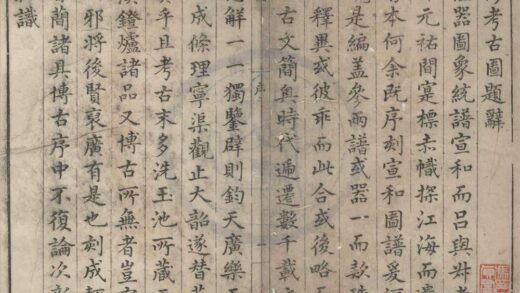 考古圖題辭
器圖象統譜宣和而呂與叔考
元祐間寔標赤幟探江海而
本何余旣序刻宣和圖譜爰
是編蓋參兩譜或器一而款
釋異或彼乖而此合或後略
古文簡奥時代遞遷數千載
序
解一一獨鑒辟則鈞天廣樂
成條理寧渠觀止大韶遂替
乎且考古末多洗玉池所藏
鐙爐諸品又博古所無者豈
邪將後賢裒廣有是也刻成
簡諸具博古序中不復論次
識